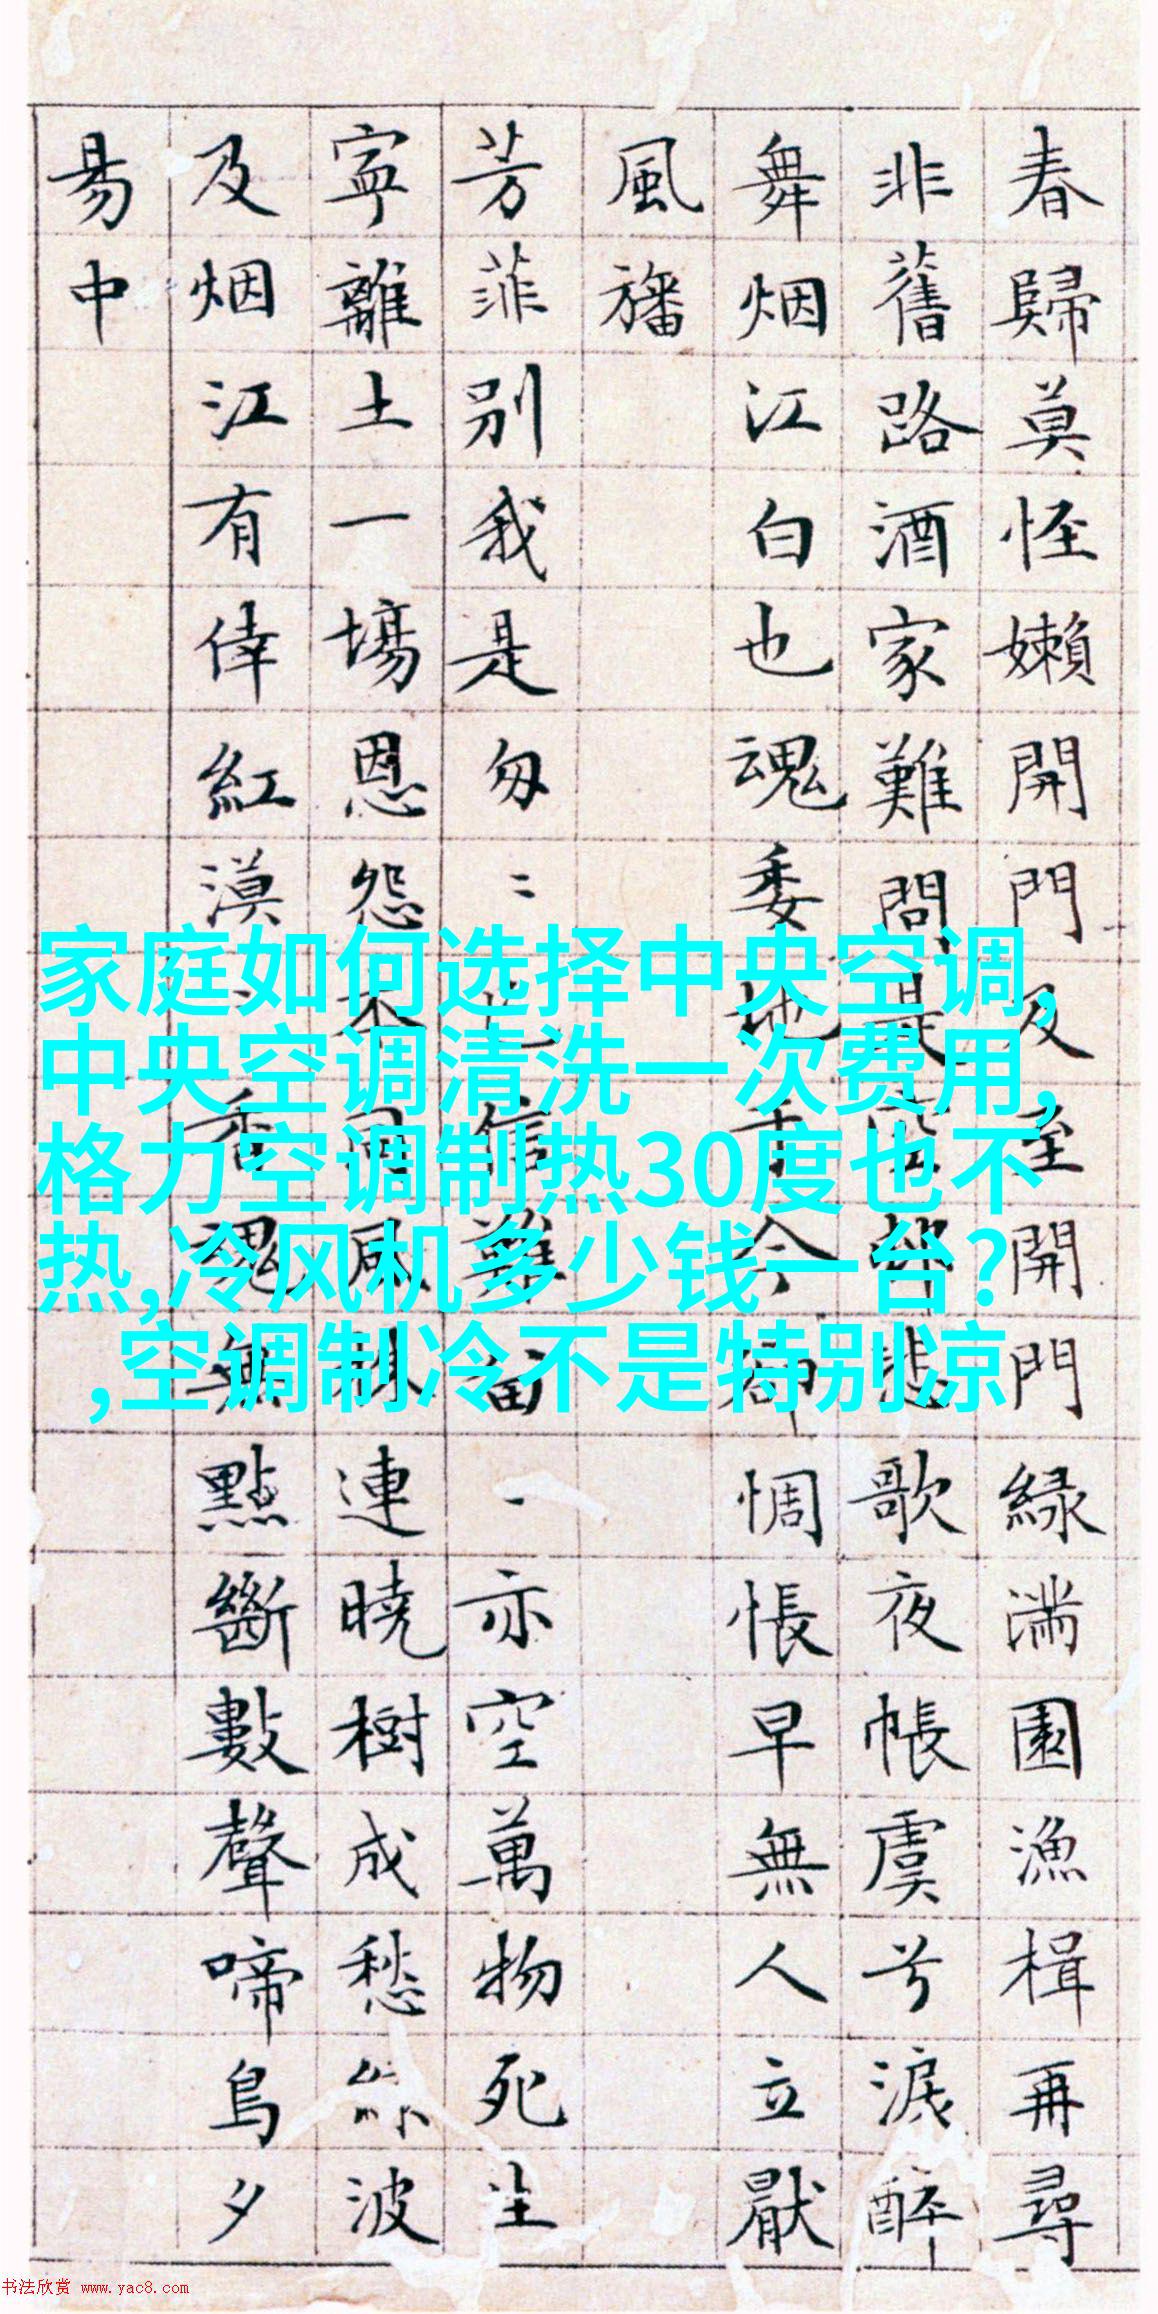 春歸莫怪嬾開門及至開門綠滿園漁楫再尋
非舊路酒家難問是
歌夜帳虞兮淚醉
舞烟江白也魂委地于今卻惆悵早無人立厭
風旛
芳菲別我是匆〻
難留一亦空萬物死生
寧離土一場恩怨
連曉樹成愁
波
及烟江有倖紅漠
香魂無點斷數聲啼鳥夕
易中
家庭如何选择中央空调,
中央空调清洗一次费用,
格力空调制热30度也不
热,冷风机多少钱一台?
,空调制冷不是特别凉
书法欣赏 www.yac8.com